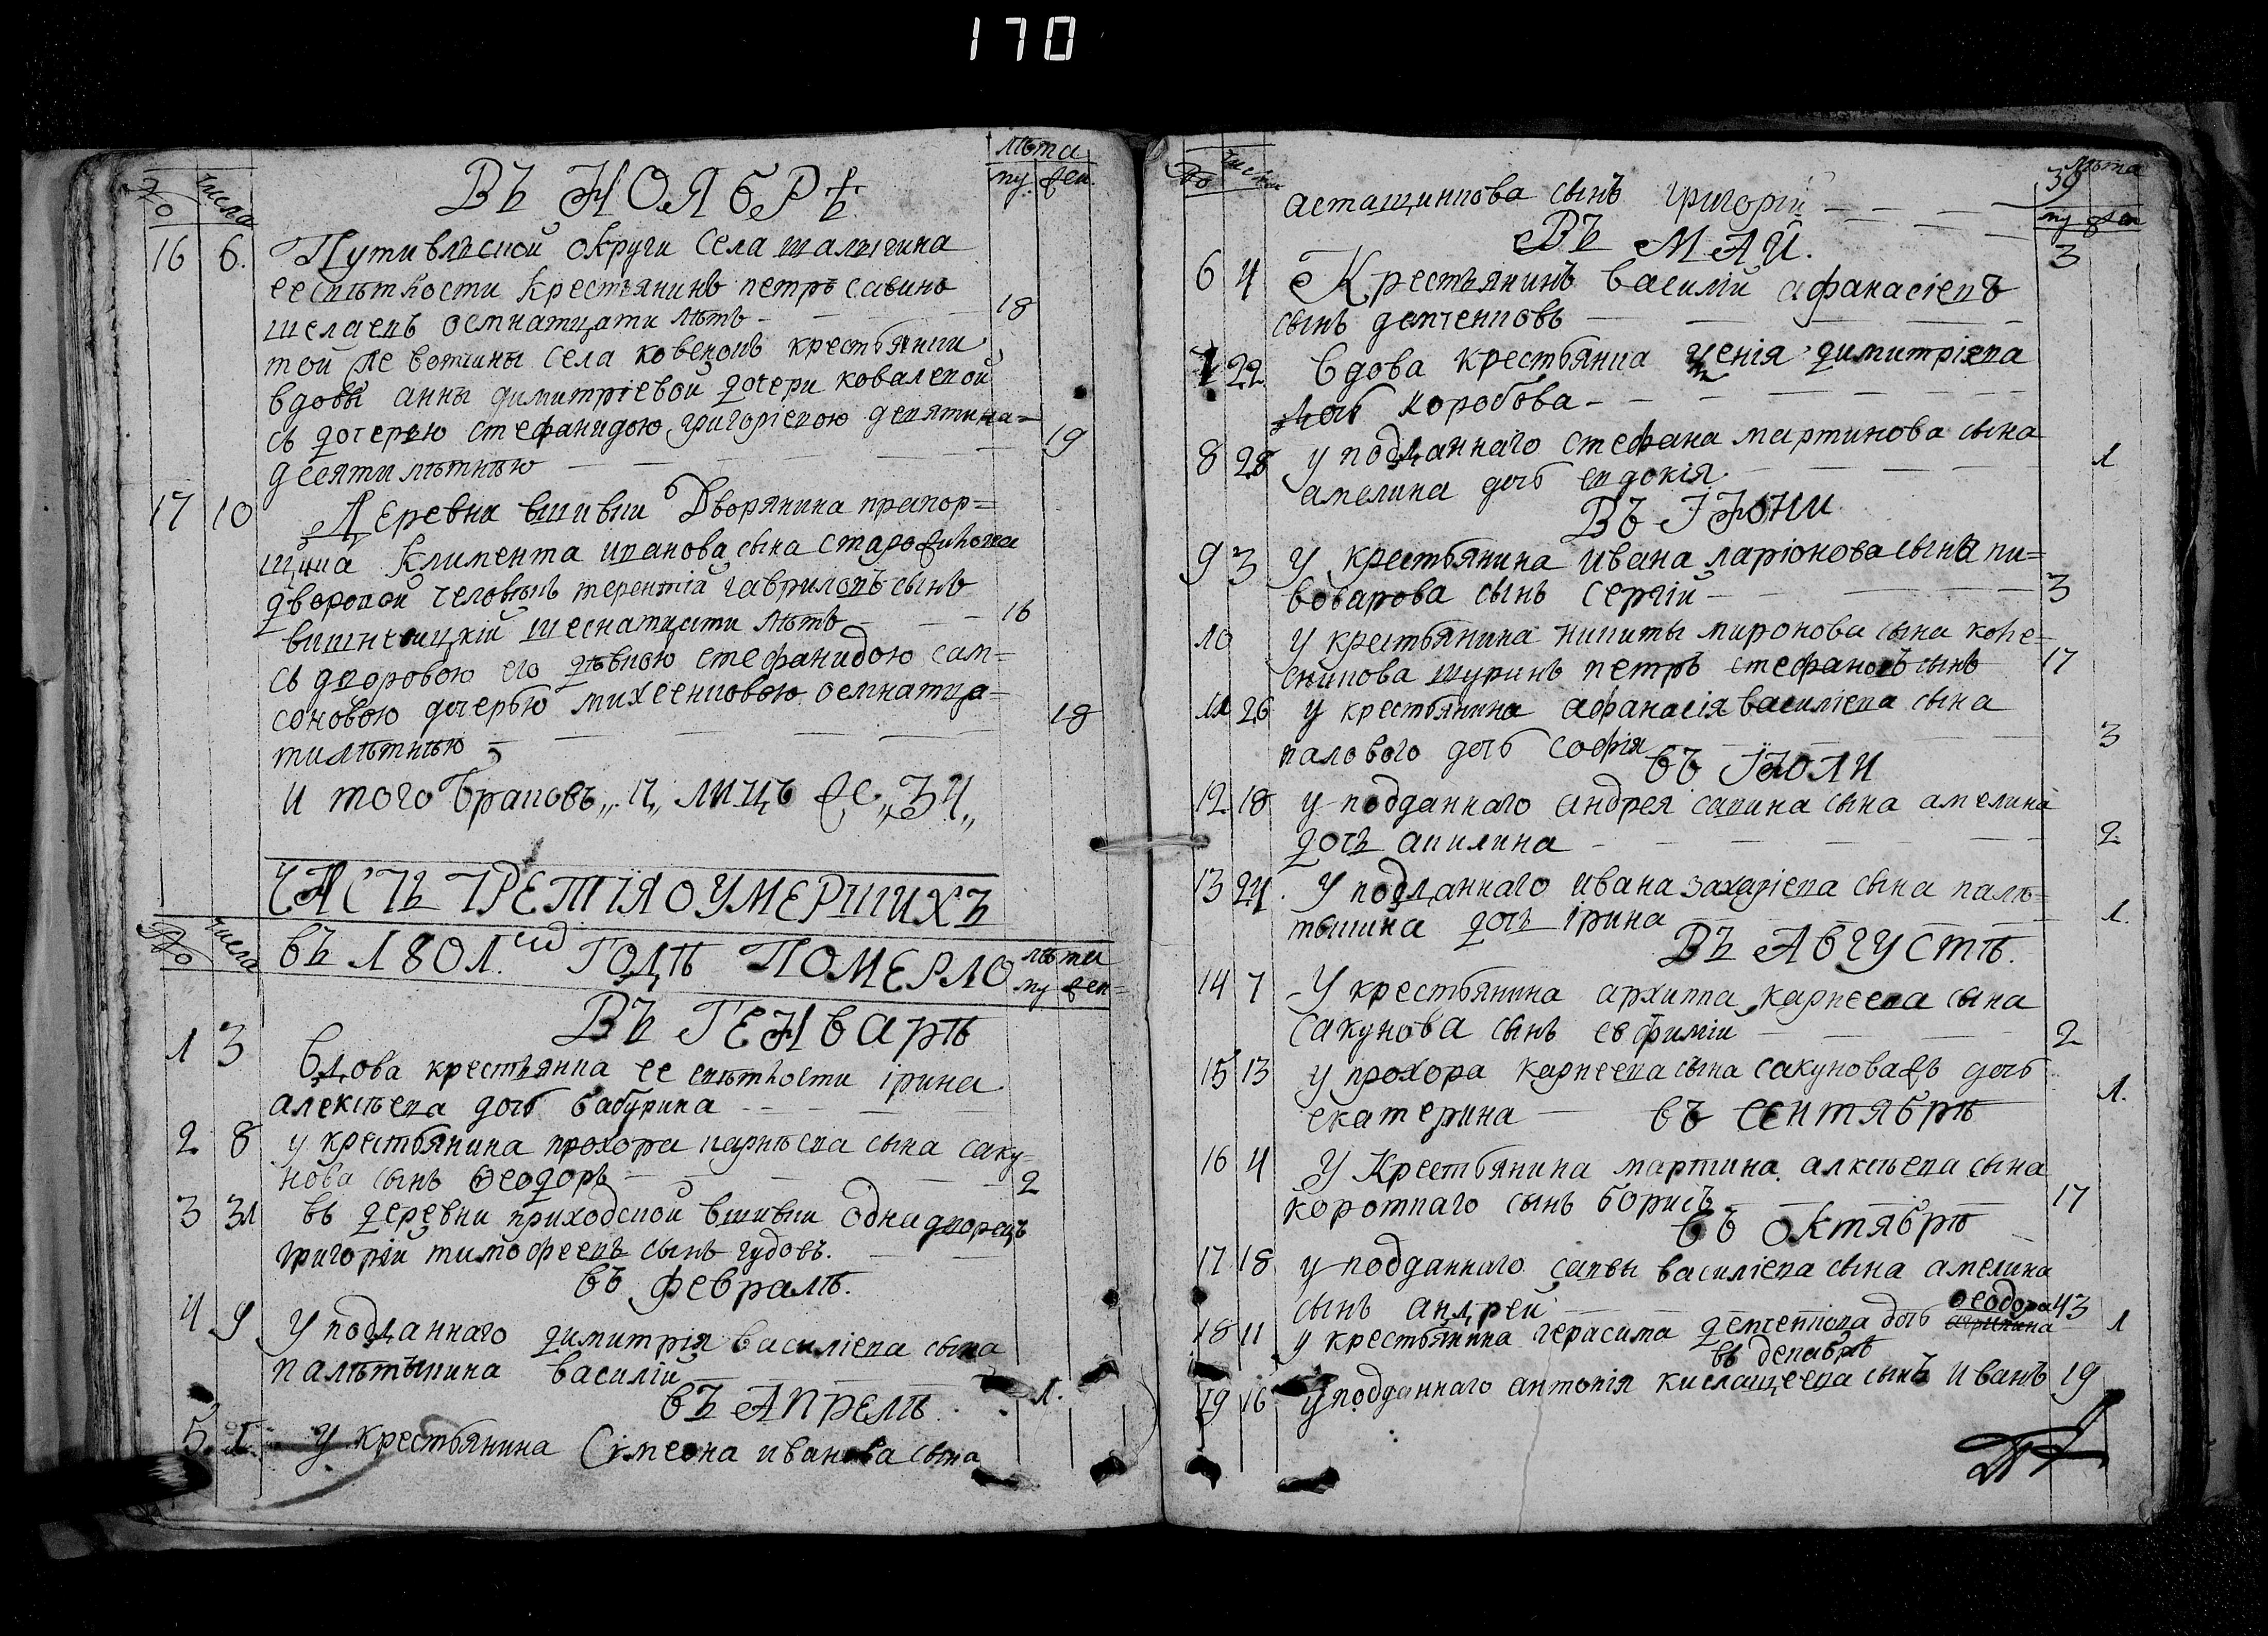 170
№ числа
лѣта
му. жен.
ВЪ НОЯБРѢ
16 6. Путивлской округи села шалыгина
ееслѣтности крестьянинъ петръ савинъ
шелаевъ осмнатцати лѣтъ — 18
той же вотчины села ковенокъ крестьянки
вдовы анны димитріевой дочери ковалевой
съ дочерью стефанидою григоріевою девятина=
десятилѣтнею — 19
17 10 Деревни вшивки Дворянина прапор=
щика Климента иванова сына
дворовой человѣкъ терентій гавриловъ сынъ
шеснатцати лѣтъ — 16
съ дворовою его дѣвкою стефанидою сам=
соновою дочерью михеенковою осмнатца=
тилѣтнею — 18
и того браковъ „17„ лицъ же „34„
ЧАСТЬ ТРЕТІЯ О УМЕРШИХЪ
№ числа
ВЪ 1801.мъ ГОДѢ ПОМЕРЛО
лѣта
му жен=
ВЪ ГЕНВАРѢ
1 3 Вдова крестьянка ее свѣтлости ірина
алексѣева дочь бабурина
2 8 у крестьянина прохора карпѣева сына саку=
нова сынъ Ѳеодоръ — 2
3 31 въ деревни приходской вшивки однадворецъ
григорій тимофеевъ сынъ гудовъ.
въ февралѣ.
4 9 У подданнаго димитрія василіева сына
палѣтыкина василій — 1.
ВЪ АПРЕЛѢ
5. 1 У крестьянина Сімеона иванова сына
№ числа
39
лѣта
му жен
асташинкова сынъ григорій — 3
ВЪ МАЙ.
6 4 Крестьянинъ василій афанасіевъ
сынъ демченковъ
7 22 Вдова крестьянка димитріева
дочь коробова
8 28 у подданнаго стефана мартинова сына
амелина дочь евдокія — 1
ВЪ ІЮНИ
9 3 У крестьянина ивана ларіонова сына пи=
воварова сынъ сергій — 3
10 у крестьянина никиты миронова сына
шуринъ петръ стефановъ сынъ — 17
11 26 у крестьянина афанасія василіева сына
палового дочь софія — 3
ВЪ ІЮЛИ
12 18 у подданнаго андрея савина сына амелина
дочь акилина — 2
13 24. У подданнаго ивана захаріева сына палѣ=
тыкина дочь ірина — 1.
ВЪ АВГУСТѢ.
14 7 У крестьянина архиппа карпеева сына
сакунова сынъ евфимій — 2
15 13 у прохора карпеева сына сакунова жъ дочь
екатерина — 1.
ВЪ СЕНТЯБРѢ
16 4 У Крестьянина мартина алксѣева сына
короткаго сынъ борисъ — 17
ВЪ ОКТЯБРѢ
17 18 у подданнаго саввы василіева сына амелина
сынъ андрей — 43
18 11 у крестьянина герасима демченкова дочь Ѳеодора 1
въ декабрѣ
19 16 У подданнаго антонія кислащеева сынъ иванъ 19